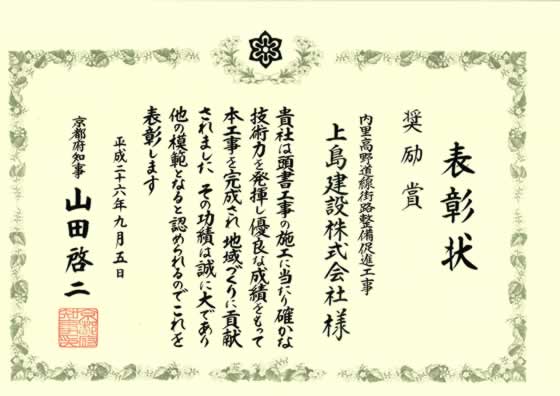 表彰状
奨励賞
内里高野道線街路整備促進工事
上島建設株式会社様
貴社は頭書工事の施工に当たり確かな
技術力を発揮し優良な成績をもって
本工事を完成され地域づくりに貢献
されました その功績は誠に大であり
他の模範となると認められるのでこれを
表彰します
平成二十六年九月五日
京都府知事 山田啓二